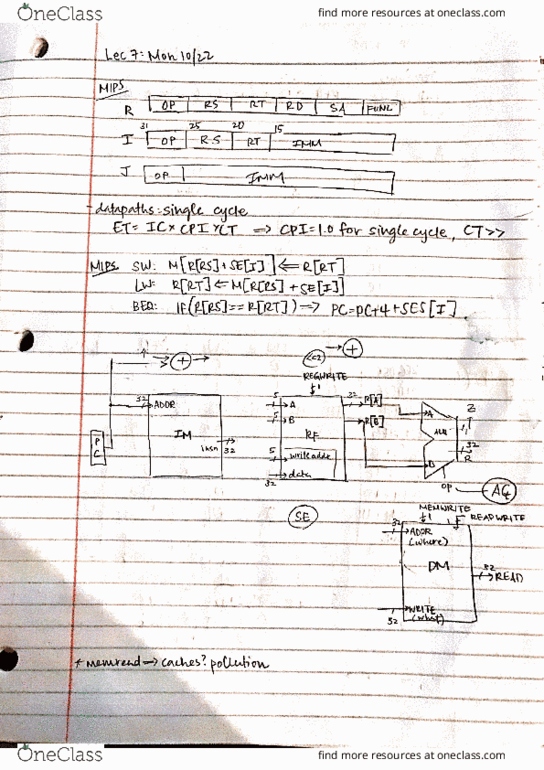 OneClass
find more resources at oneclass.com
Lec 7: Mon 10/22
MIPS
R OP RS RT RD SA FUNC
31 25 20 15
I OP RS RT IMM
J OP IMM
- datapaths: single cycle
ET = IC × CPI × CT => CPI = 1.0 for single cycle, CT >>
MIPS SW: M[R[RS] + SE[I]] <= R[RT]
LW: R[RT] <= M[R[RS] + SE[I]]
BEQ: IF(R[RS] == R[RT]) => PC = PC+4 + SES[I].
+ <<2 +
REGWRITE
32 ADDR 5 A 32 R[A] A Z
5 B R[B] ALU 1
PC IM RF 32
insn 32 5 write addr R
data B
32 OP AC
SE MEMWRITE READWRITE
32 ADDR
(where)
DM 32 READ
WRITE
32 (what)
* memread -> caches? pollution
OneClass
find more resources at oneclass.com